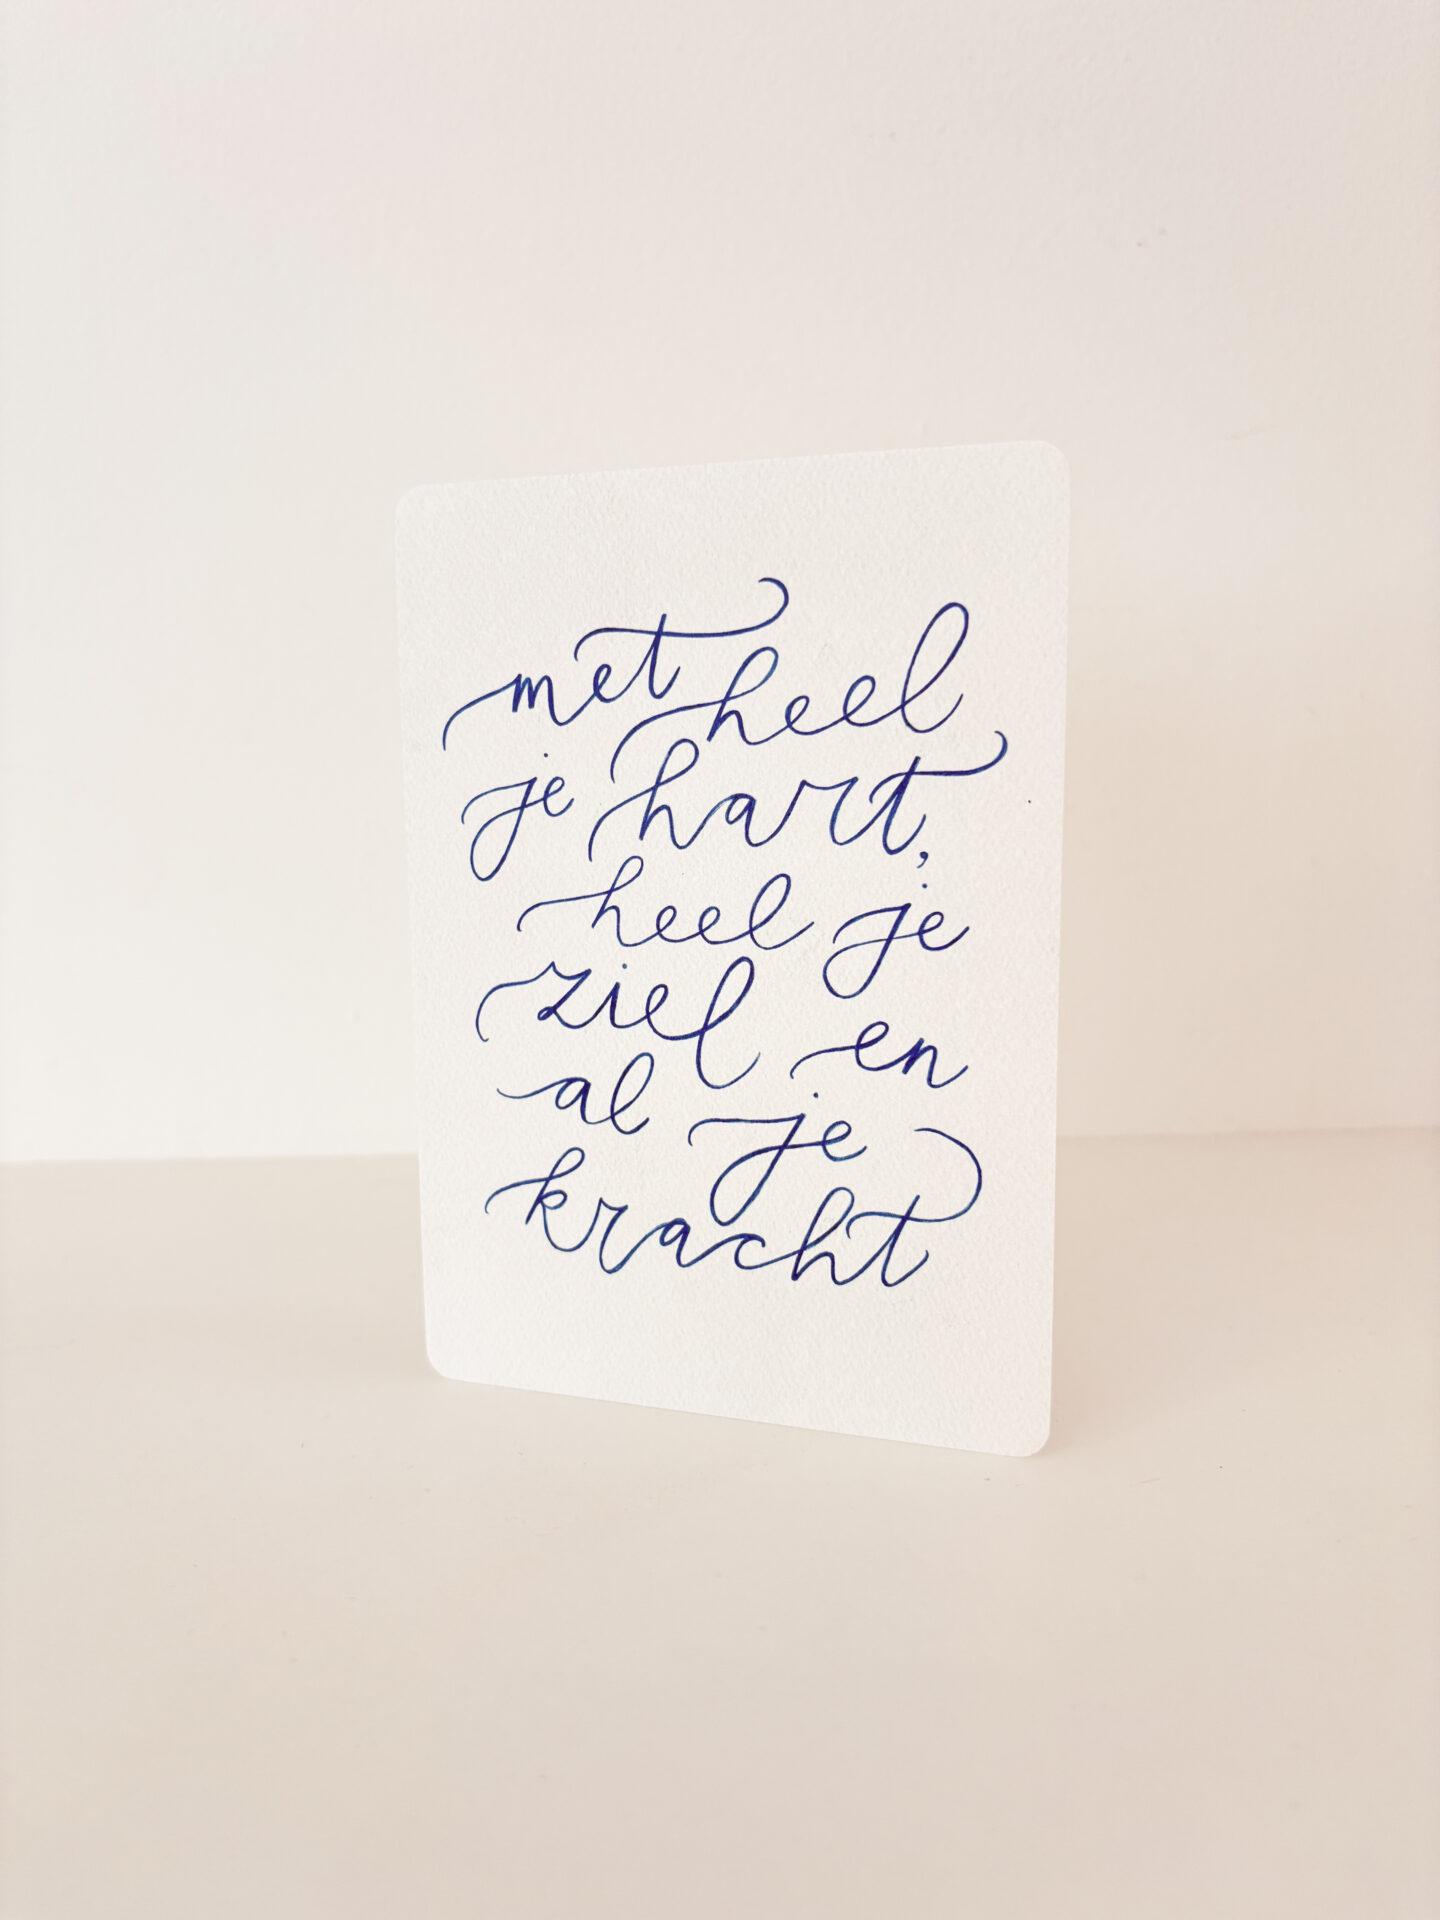 met heel
je hart,
heel je
ziel en
al je
kracht